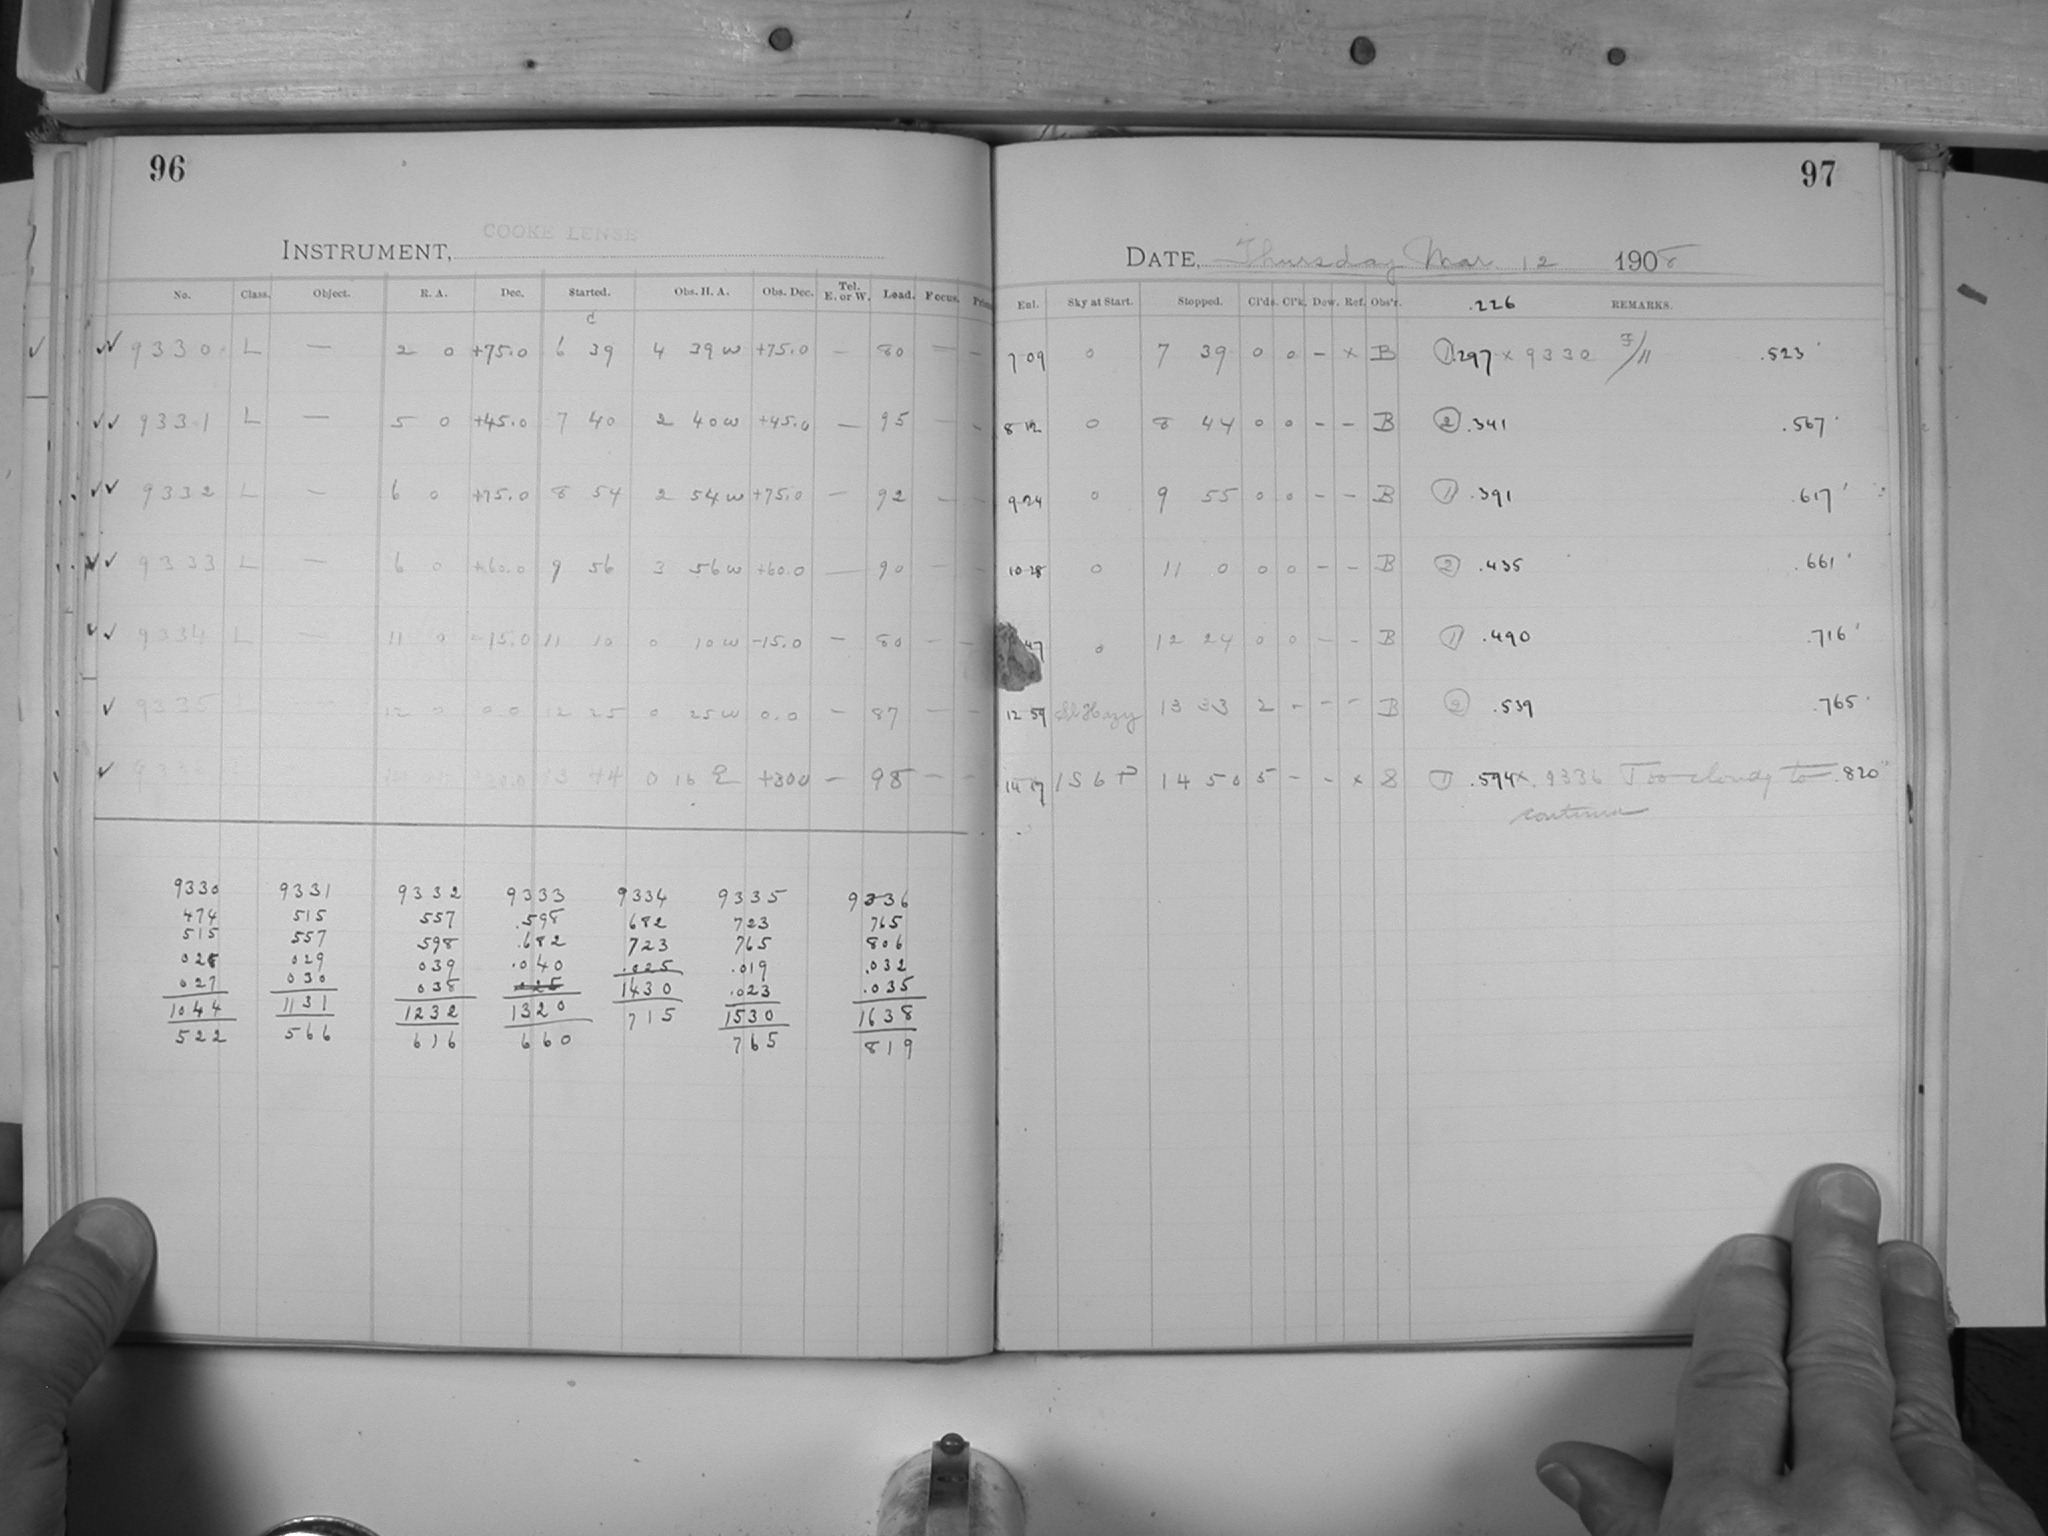 96
COOKE LENSE
INSTRUMENT,
No. Class. Object. R. A. Dec. Started. Obs. H. A. Obs. Dec. Tel. E. or W. Load. Focus.
c
9330 L — 2 0 +75.0 6 39 4 39 w +75.0 — 80 — —
9331 L — 5 0 +45.0 7 40 2 40 w +45.0 — 95 — —
9332 L — 6 0 +75.0 8 54 2 54 w +75.0 — 92 — —
9333 L — 6 0 +60.0 9 56 3 56 w +60.0 — 90 — —
9334 L — 11 0 -15.0 11 10 0 10 w -15.0 — 80 — —
9335 L — 12 0 0.0 12 25 0 25 w 0.0 — 87 — —
13 44 0 16 E +30.0 — 98 — —
9330 9331 9332 9333 9334 9335 9336
474 515 557 .598 682 723 765
515 557 598 .682 723 765 806
028 029 039 .040 .025 .019 .032
027 030 038 .025 1430 .023 .035
1044 1131 1232 1320 715 1530 1638
522 566 616 660 765 819
97
DATE, Thursday Mar. 12 1908
Eul. Sky at Start. Stopped. Cl'ds. Cl'k. Dew. Ref. Obs'r. .226 REMARKS.
7 09 0 7 39 0 0 - x B ① .297 x 9330 F/11 .523
8 12 0 8 44 0 0 - - B ② .341 .567
9 24 0 9 55 0 0 - - B ① .391 .617
10 28 0 11 0 0 0 - - B ② .435 .661
47 0 12 24 0 0 - - B ① .490 .716
12 59 Sl Hazy 13 33 2 - - - B ② .539 .765
14 17 1S6P 14 50 5 - - x S ① .594 x 9336 Too cloudy to .820
continue